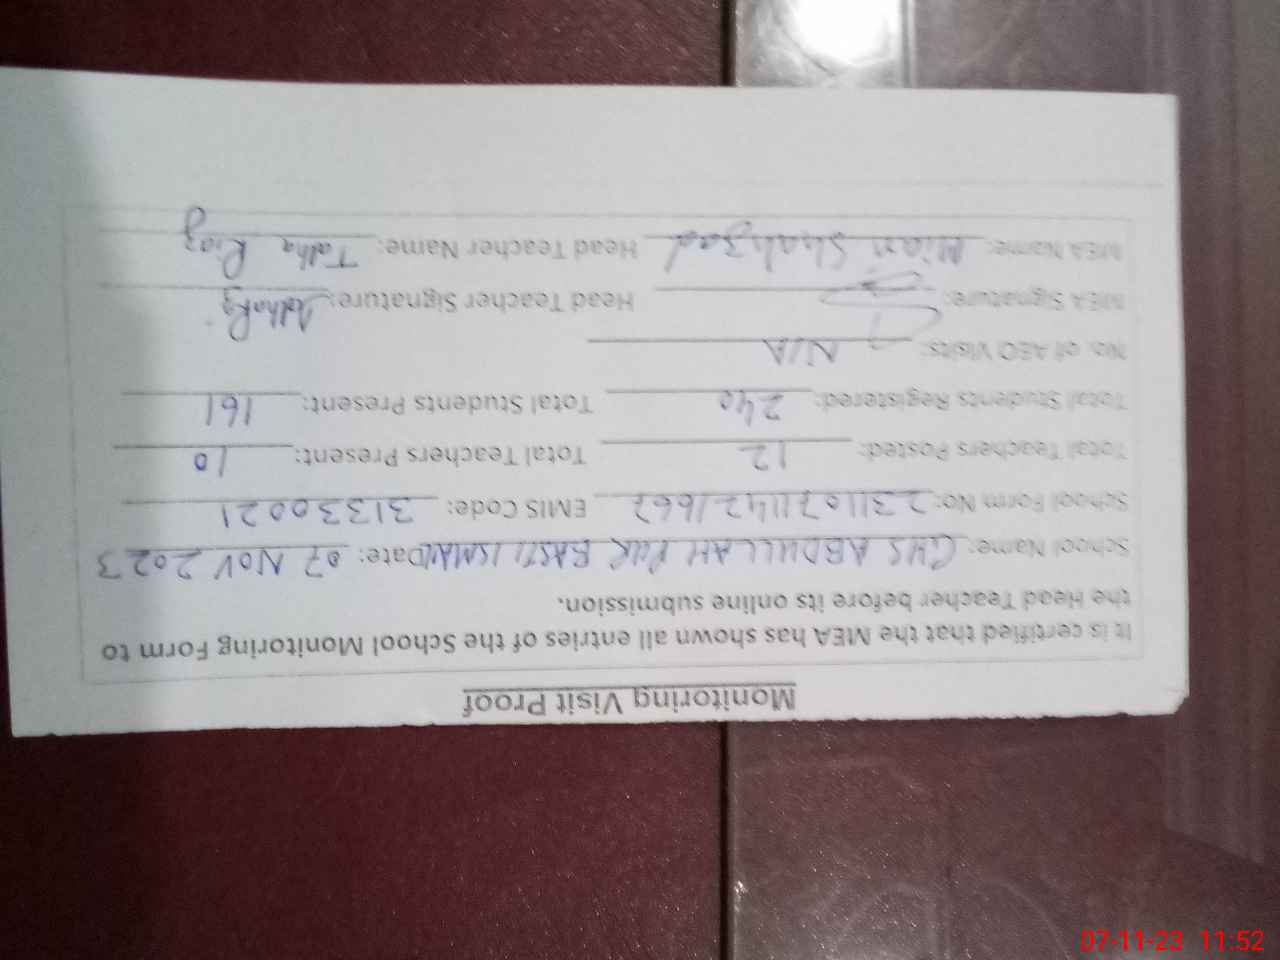 Monitoring Visit Proof
It is certified that the MEA has shown all entries of the School Monitoring Form to
the Head Teacher before its online submission.
School Name: GHS ABDULLAH PUR BASTI ISMAIL Date: 07 NOV 2023
School Form No: 231107114216 EMIS Code: 31330021
Total Teachers Posted: 12 Total Teachers Present: 10
Total Students Registered: 240 Total Students Present: 161
No. of AEO Visits: N/A
MEA Signature: Head Teacher Signature: TalhaRz
MEA Name: Mian Shahzad Head Teacher Name: Talha Riaz
07-11-23 11:52